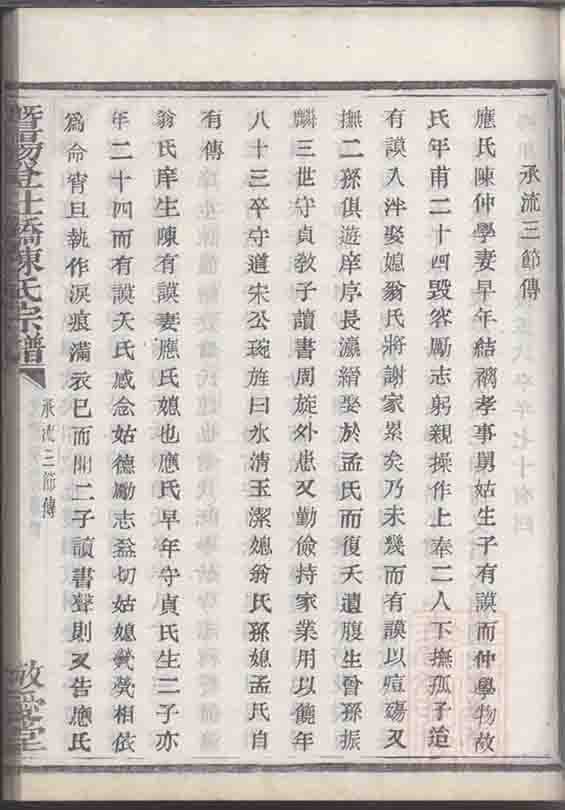 承流三節傳
應氏陳仲學妻早年結褵孝事舅姑生子有謨而仲學物故
氏年甫二十四毀容勵志躬親操作上奉二人下撫孤子迨
有謨入泮娶媳翁氏將謝家累矣乃未幾而有謨以痘殤又
撫二孫俱遊庠序長瀛縉娶於孟氏而復夭遺腹生曾孫振
麟三世守貞教子讀書周旋外患又勤儉持家業用以饒年
八十三卒守道宋公琬旌曰水清玉潔媳翁氏孫媳孟氏自
有傳
翁氏庠生陳有謨妻應氏媳也應氏早年守貞氏生二子亦
年二十四而有謨夭氏感念姑德勵志益切姑媳煢煢相依
為命宵旦執作淚痕滿衣已而聞二子讀書聲則又告應氏
暨陽登仕橋陳氏宗譜
承流三節傳
敬愛堂